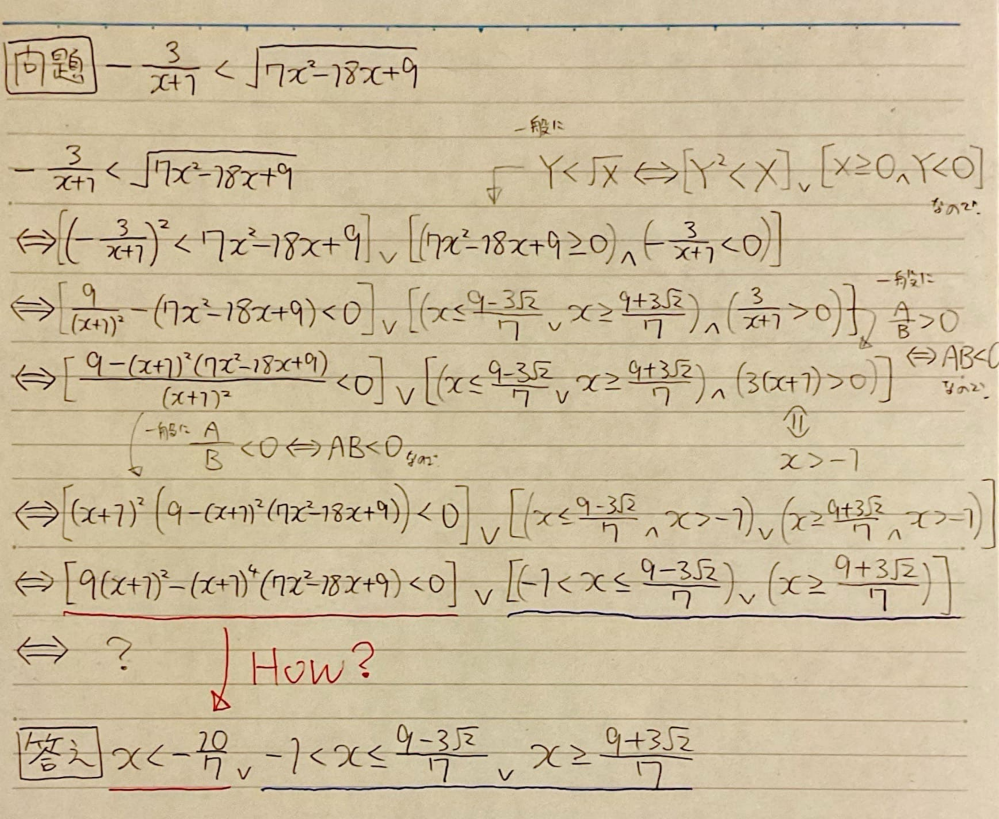 問題 -3/(x+1) < √(7x²-18x+9)
一般に
-3/(x+1) < √(7x²-18x+9) Y<√X ⇔ [Y²<X] ∨ [X≥0 ∧ Y<0]
なので
⇔ [(-3/(x+1))² < 7x²-18x+9] ∨ [(7x²-18x+9≥0) ∧ (-3/(x+1)<0)]
一般に
⇔ [9/(x+1)² - (7x²-18x+9) < 0] ∨ [(x≤(9-3√2)/7 ∨ x≥(9+3√2)/7) ∧ (3/(x+1)>0)] A/B>0
⇔ [(9-(x+1)²(7x²-18x+9))/(x+1)² < 0] ∨ [(x≤(9-3√2)/7 ∨ x≥(9+3√2)/7) ∧ (3(x+1)>0)] ⇔ AB<0
なので
一般に A/B<0 ⇔ AB<0 なので ⇔ x>-1
⇔ [(x+1)²(9-(x+1)²(7x²-18x+9))<0] ∨ [(x≤(9-3√2)/7 ∧ x>-1) ∨ (x≥(9+3√2)/7 ∧ x>-1)]
⇔ [9(x+1)²-(x+1)⁴(7x²-18x+9)<0] ∨ [(-1<x≤(9-3√2)/7) ∨ (x≥(9+3√2)/7)]
⇔ ?
How?
答え x<-10/7 ∨ -1<x≤(9-3√2)/7 ∨ x≥(9+3√2)/7